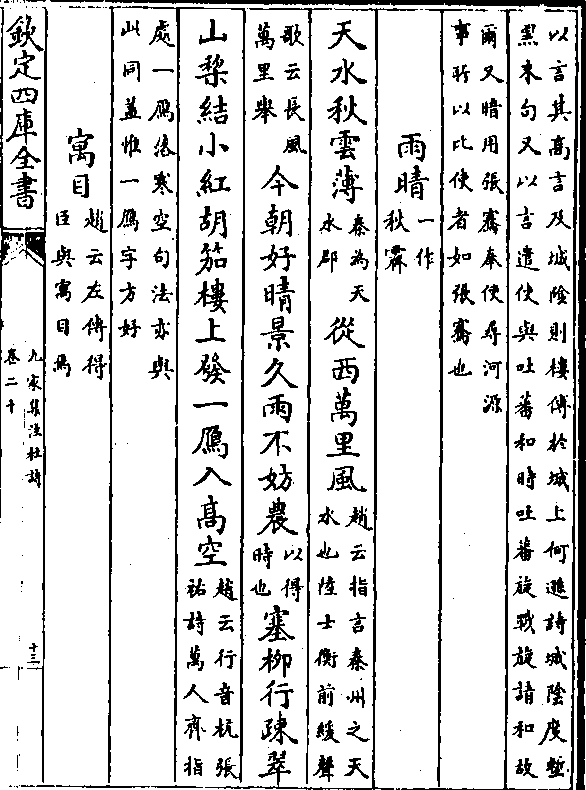 以言其高言及城險則樓傅於城上何遜詩城陰度塹
黑末句又以言遣使與吐蕃和時吐蕃旋戰旋請和故
爾又暗用張騫奉使尋河源
事所以比使者如張騫也
雨晴一作秋霽
天水秋雲薄秦為天水郡從西萬里風趙云指言秦州之天水也陸士衡前緩聲
歌云長風萬里舉今朝好晴景久雨不妨農以得時也塞柳行疎翠
山梨結小紅胡笳樓上發一鴈入髙空趙云行音杭張祐詩萬人齊指
處一鴈落寒空句法亦與
此同蓋惟一鴈字方好
寓目趙云左傳得臣與寓目焉
欽定四庫全書
九家集注杜詩
卷二十
十三